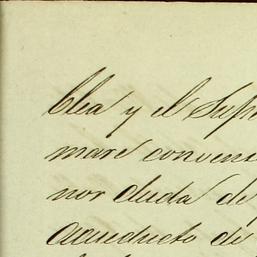 blea y el Sup
mare conveni
nor duda de
acueducto de